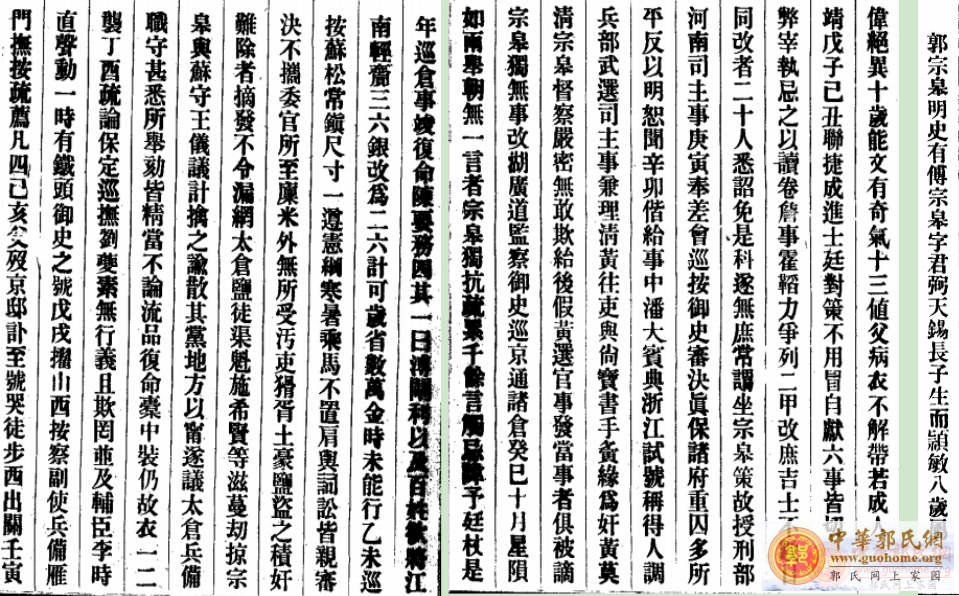 郭宗皋明史有傅宗皋字君弼天錫長子生而頴敏八歲
偉絕異十歲能文有奇氣十三値父病衣不解帶若成人
靖戊子己丑聯捷成進士廷對策不用冒白獻六事皆切
弊宰執忌之以讀卷詹事霍韜力爭列二甲改庶吉士
同改者二十人悉詔免是科遂無庶常謂坐宗皋策故授刑部
河南司主事庚寅奉差會巡按御史審決眞保諸府重囚多所
平反以明恕聞辛卯偕給事中潘大賓典浙江試號稱得人調
兵部武選司主事兼理清黃往吏與尙寶書手夤緣爲奸黃莫
清宗皋督察嚴密無敢欺紿後假黃選官事發當事者俱被謫
宗皋獨無事改湖廣道監察御史巡京通諸倉癸巳十月星隕
如雨舉朝無一言者宗皋獨抗疏累千餘言觸忌諱予廷杖是
年巡倉事竣復命陳要務四其一曰溥開利以及百姓歉將江
南輕齎三六銀改爲二六計可歲省數萬金時未能行乙未巡
按蘇松常鎭尺寸一遵憲綱寒暑乘馬不置肩輿詞訟皆親審
決不攜委官所至廩米外無所受汚吏猾胥土豪鹽盜之積奸
難除者摘發不令漏網太倉鹽徒渠魁施希賢等滋蔓劫掠宗
皋與蘇守王儀議計擒之諭散其黨地方以甯遂議太倉兵備
職守甚悉所舉劾皆精當不論流品復命橐中裝仍故衣一二
襲丁酉疏論保定巡撫劉夔素無行義且欺罔並及輔臣李時
直聲動一時有鐵頭御史之號戊戌擢山西按察副使兵備雁
門撫按疏薦凡四己亥父歿京邸訃至號哭徒步西出關壬寅
中華郭氏網
www.guohome.org
郭氏网上家园